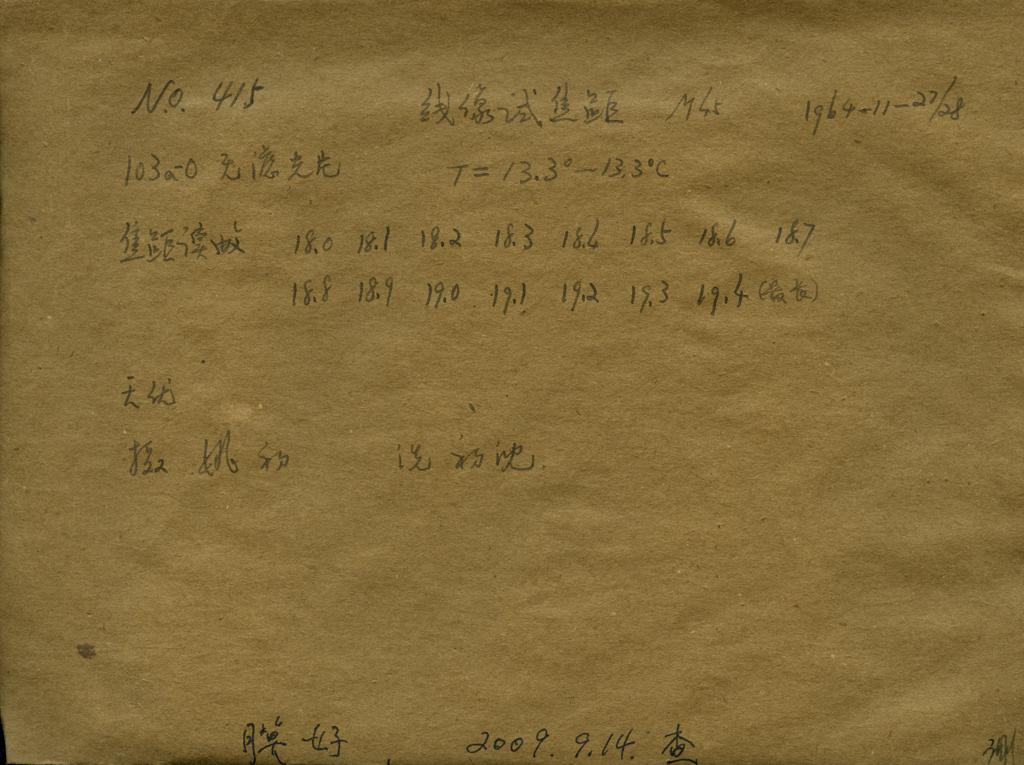 NO. 415 线像试焦距 M45 1964-11-27/28
103a-O 无滤光片 T = 13.3° — 13.3°C
焦距读数 18.0 18.1 18.2 18.3 18.4 18.5 18.6 18.7
18.8 18.9 19.0 19.1 19.2 19.3 19.4 (最长)
天优
摄 姚 初 洗 初 沈
膜好 2009. 9.14. 查